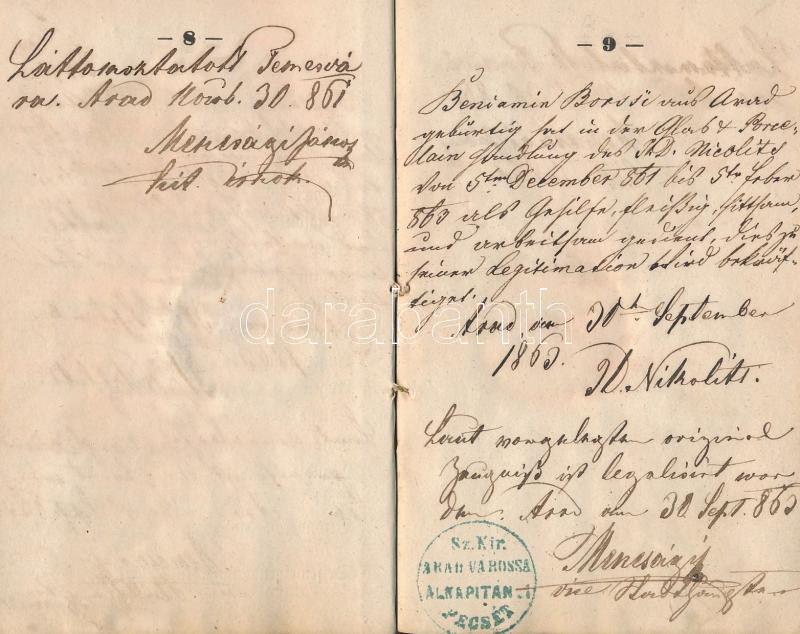 — 8 —
Láttamoztatott Temesvá
ra. Arad Novb. 30. 861
Mencsági János
— 9 —
Beniamin Borosi aus Arad
gebürtig hat in der Glas & Porce-
llain Handlung des Th. D. Nicolits
von 5ten December 861 bis 5ten Feber
863 als Gehilfe, fleißig, sittsam,
und arbeitsam gedient, dies zu
seiner Legitimation wird bekräf-
tiget.
Arad, den 30th September
1863.
D. Nikolits.
Laut vorgelegten original
Zeugniß ist legalisirt wor
den. Arad am 30 Sept. 863
Mencsági
vice Stadthauptm
Sz. Kir.
ARAD VAROSSA
ALKAPITÁNYI
PECSÉT
darabanth.com